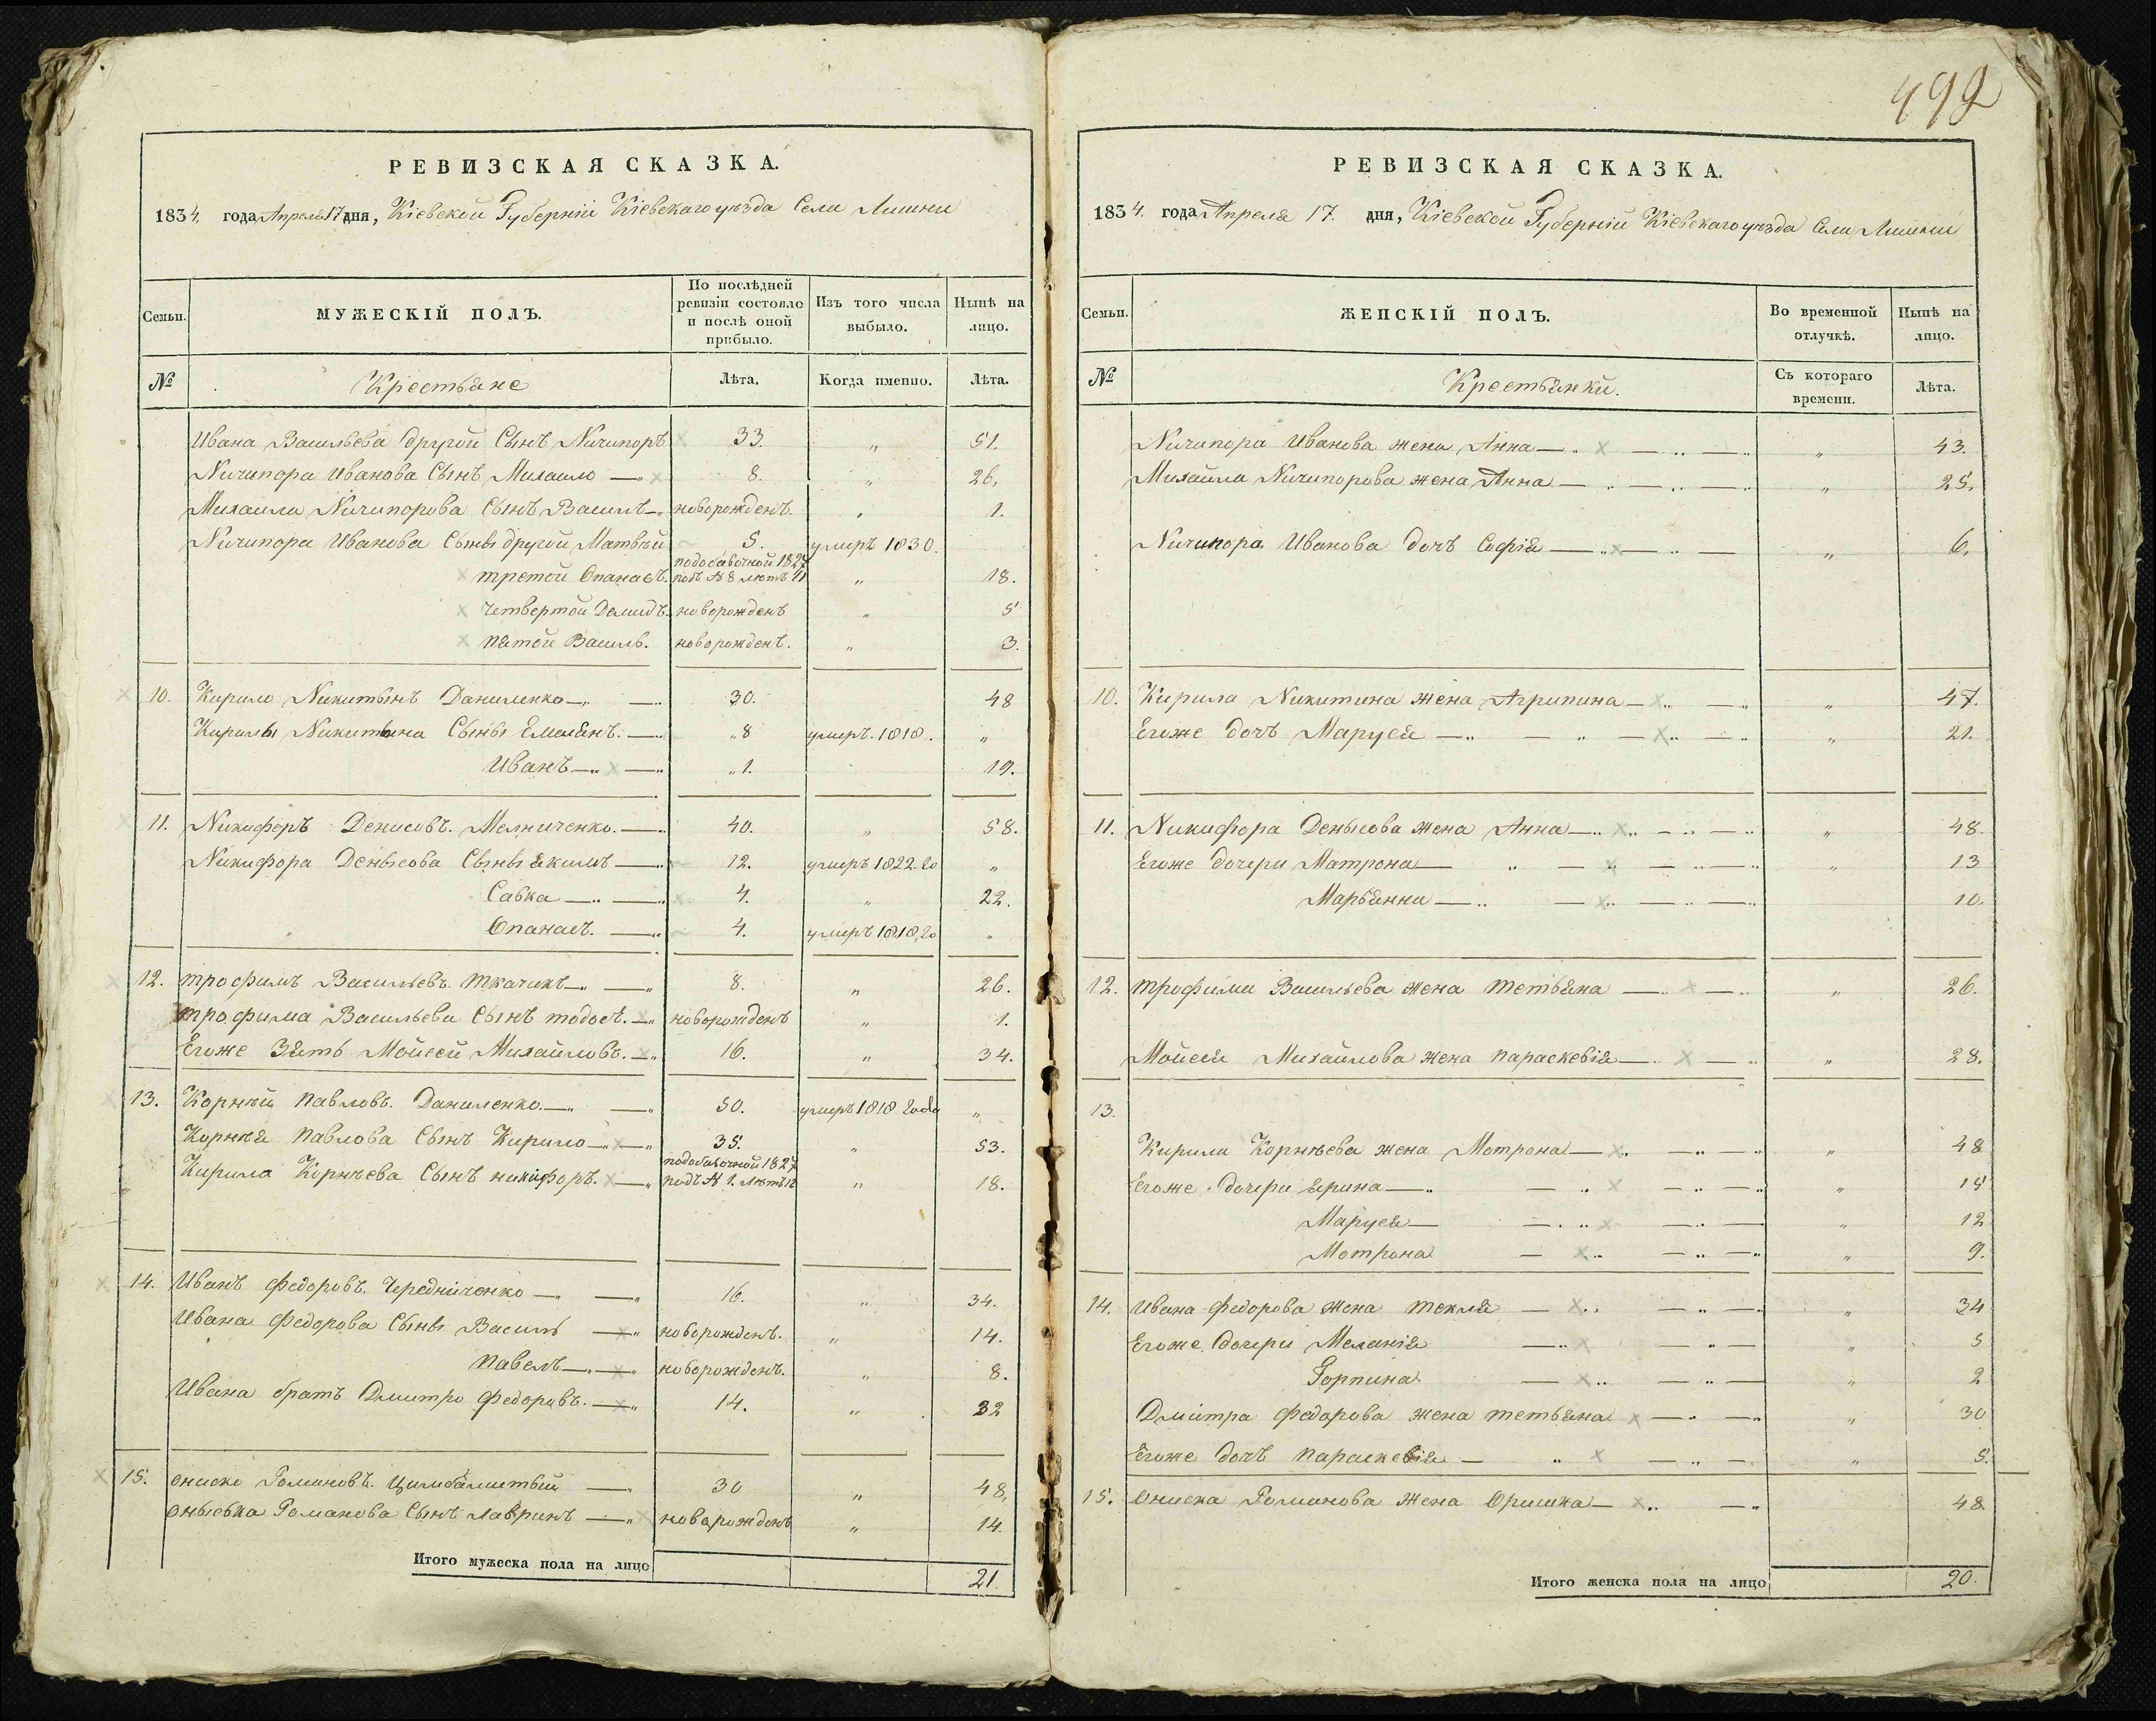 РЕВИЗСКАЯ СКАЗКА.
1834. года Апреля 17 дня, Кіевской Губерніи Кіевскаго уѣзда Села Лишни
Семьи.
МУЖЕСКІЙ ПОЛЪ.
По послѣдней ревизіи состояло и послѣ оной прибыло.
Изъ того числа выбыло.
Нынѣ на лицо.
№
Крестьяне
Лѣта.
Когда именно.
Лѣта.
Ивана Васильева другой Сынъ Ничипоръ 33. „ 51.
Ничипора Иванова Сынъ Михайло — 8. „ 26.
Михайла Ничипорова Сынъ Василь — новорожденъ. „ 1.
Ничипора Иванова Сыны другой Матвѣй 5. умеръ 1830.
третой Опанасъ. подобавочной 1827 подъ № 8 лѣтъ 11 „ 18.
четвертой Демидъ. новорожденъ „ 5
пятой Василь. новорожденъ. „ 3.
10. Кирило Никитынъ Даниленко — 30. 48
Кирилы Никитына Сыны Емельянъ. — „8 умеръ. 1818. „
Иванъ — „1. 19.
11. Никифоръ Денисовъ. Мелниченко. — 40. „ 58.
Никифора Денысова Сыны Якимъ — 12. умеръ 1822. го „
Савка — 4. „ 22.
Опанасъ. — 4. умеръ 1818. го „
12. трофимъ Васильевъ. ткачикъ — 8. „ 26.
трофима Васильева Сынъ тодосъ. — новорожденъ „ 1.
Егоже Зять Мойсей Михайловъ. — 16. „ 34.
13. Корнѣй павловъ. Даниленко. — 50. умеръ 1818 года „
Корнѣя павлова Сынъ Кирило — 35. „ 53.
Кирила Корнѣева Сынъ никифоръ. — подобавочной 1827 подъ № 1. лѣтъ 12 „ 18.
14. Иванъ Федоровъ. Чередниченко — 16. „ 34.
Ивана Федорова Сыны Василь — новорожденъ. „ 14.
павелъ — новорожденъ. „ 8.
Ивана братъ Дмитро Федоровъ. — 14. „ 32
15. ониско Романовъ. Цимбалистый — 30 „ 48.
оныська Романова Сынъ Лавринъ — новорожденъ „ 14.
Итого мужеска пола на лицо 21.
499
РЕВИЗСКАЯ СКАЗКА.
1834. года Апреля 17. дня, Кіевской Губерніи Кіевскаго уѣзда Села Лишни
Семьи.
ЖЕНСКІЙ ПОЛЪ.
Во временной отлучкѣ.
Нынѣ на лицо.
№
Крестьянки.
Съ котораго времени.
Лѣта.
Ничипора Иванова жена Анна — „ 43.
Михайла Ничипорова жена Анна — „ 25.
Ничипора Иванова дочъ Софія — „ 6.
10. Кирила Никитина жена Агрипина — „ 47.
Егоже дочъ Маруся — „ 21.
11. Никифора Денысова жена Анна — „ 48.
Егоже дочери Матрона — „ 13
Марьянна — 10.
12. трофима Васильева жена тетьяна — „ 26.
Мойсея Михайлова жена параскевія — „ 28.
13.
Кирила Корнѣева жена Мотрона — „ 48
Егоже дочери Ярина — „ 15
Маруся — „ 12
Мотрона — „ 9.
14. Ивана Федорова жена текля — „ 34
Егоже дочери Меланія — „ 5
Горпина — „ 2
Дмитра Федорова жена тетьяна — „ 30
Егоже дочъ параскевія — „ 5.
15. Ониска Романова жена Оришка — 48
Итого женска пола на лицо 20.